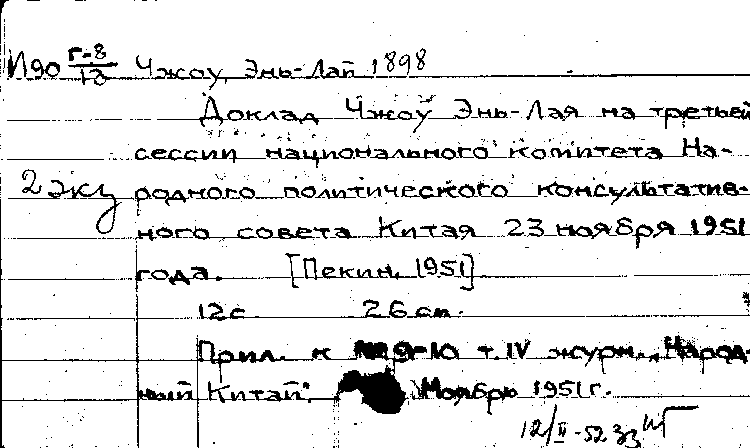 И90 Г-8/13 Чжоу, Энь-Лай 1898
Доклад Чжоу Энь-Лая на третьей
сессии национального комитета На-
2 экз родного политического консультатив-
ного совета Китая 23 ноября 1951
года. [Пекин, 1951]
12с. 26 см.
Прил. к №№ 9-10 т. IV журн. „Народ-
ный Китай". Ноябрь 1951 г.
12/II-52